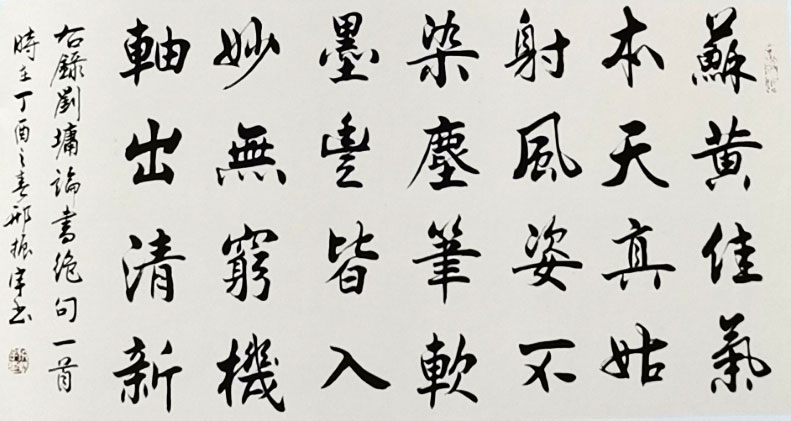 蘇黄佳氣
本天真姑
射風姿不
染塵筆軟
墨豊皆入
妙無窮機
軸出清新
右錄劉墉論書絶句一首
時在丁酉之春邢振宇書